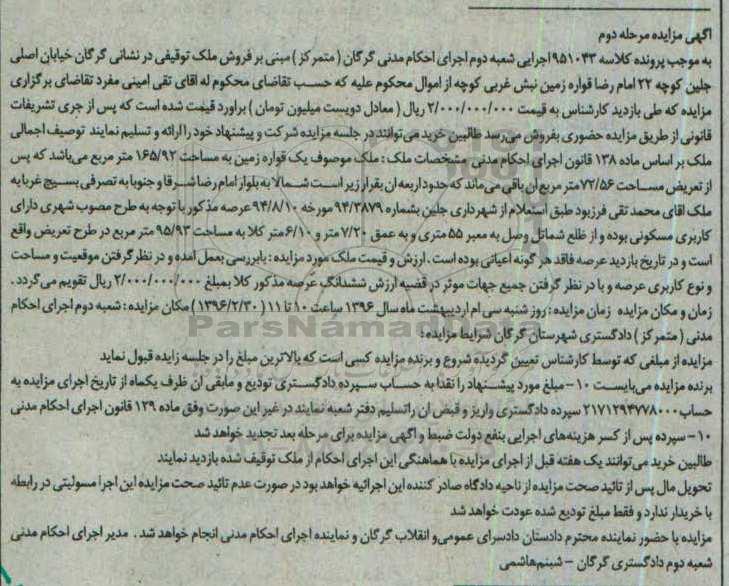 اگهی مزایده مرحله دوم
به موجب پرونده کلاسه ۹۵۱۰۴۳ اجرایی شعبه دوم اجرای احکام مدنی گرگان (متمرکز) مبنی بر فروش ملک توقیفی در نشانی گرگان خیابان اصلی
جلین کوچه ۲۲ امام رضا قواره زمین نبش غربی کوچه از اموال محکوم علیه که حسب تقاضای محکوم له اقای تقی امینی مفرد تقاضای برگزاری
مزایده که طی بازدید کارشناس به قیمت ۲/۰۰۰/۰۰۰/۰۰۰ ریال (معادل دویست میلیون تومان) براورد قیمت شده است که پس از جری تشریفات
قانونی از طریق مزایده حضوری بفروش می‌رسد طالبین خرید می‌توانند در جلسه مزایده شرکت و پیشنهاد خود را ارائه و تسلیم نمایند توصیف اجمالی
ملک بر اساس ماده ۱۳۸ قانون اجرای احکام مدنی مشخصات ملک: ملک موصوف یک قواره زمین به مساحت ۱۶۵/۹۲ متر مربع می‌باشد که پس
از تعریض مساحت ۷۲/۵۶ متر مربع ان باقی می‌ماند که حدود اربعه ان بقرار زیر است شمالا به بلوار امام رضا شرقا و جنوبا به تصرفی بسیج غربا به
ملک اقای محمد تقی فرزبود طبق استعلام از شهرداری جلین بشماره ۹۴/۳۸۷۹ مورخه ۹۴/۸/۱۰ عرصه مذکور با توجه به طرح مصوب شهری دارای
کاربری مسکونی بوده و از ظلع شمالی وصل به معبر ۵۵ متری و به عمق ۷/۲۰ متر و ۶/۱۰ متر کلا به مساحت ۹۵/۹۳ متر مربع در طرح تعریض واقع
است و در تاریخ بازدید عرصه فاقد هر گونه اعیانی بوده است. ارزش و قیمت ملک مورد مزایده: بابررسی بعمل امده و در نظر گرفتن موقعیت و مساحت
و نوع کاربری عرصه و با در نظر گرفتن جمیع جهات موثر در قضیه ارزش ششدانگ عرصه مذکور کلا بمبلغ ۲/۰۰۰/۰۰۰/۰۰۰ ریال تقویم می‌گردد.
زمان و مکان مزایده زمان مزایده: روز شنبه سی ام اردیبهشت ماه سال ۱۳۹۶ ساعت ۱۰ تا ۱۱ (۱۳۹۶/۲/۳۰) مکان مزایده: شعبه دوم اجرای احکام
مدنی (متمرکز) دادگستری شهرستان گرگان شرایط مزایده:
مزایده از مبلغی که توسط کارشناس تعیین گردیده شروع و برنده مزایده کسی است که بالاترین مبلغ را در جلسه زایده قبول نماید
برنده مزایده می‌بایست ۱۰- مبلغ مورد پیشنهاد را نقدا به حساب سپرده دادگستری تودیع و مابقی ان ظرف یکماه از تاریخ اجرای مزایده به
حساب ۲۱۷۱۲۹۴۷۷۸۰۰۰ سپرده دادگستری واریز و قبض ان راتسلیم دفتر شعبه نمایند در غیر این صورت وفق ماده ۱۲۹ قانون اجرای احکام مدنی
۱۰- سپرده پس از کسر هزینه‌های اجرایی بنفع دولت ضبط و اگهی مزایده برای مرحله بعد تجدید خواهد شد
طالبین خرید می‌توانند یک هفته قبل از اجرای مزایده با هماهنگی این اجرای احکام از ملک توقیف شده بازدید نمایند
تحویل مال پس از تائید صحت مزایده از ناحیه دادگاه صادر کننده این اجرائیه خواهد بود در صورت عدم تائید صحت مزایده این اجرا مسولیتی در رابطه
با خریدار ندارد و فقط مبلغ تودیع شده عودت خواهد شد
مزایده با حضور نماینده محترم دادستان دادسرای عمومی و انقلاب گرگان و نماینده اجرای احکام مدنی انجام خواهد شد. مدیر اجرای احکام مدنی
شعبه دوم دادگستری گرگان – شبنم هاشمی